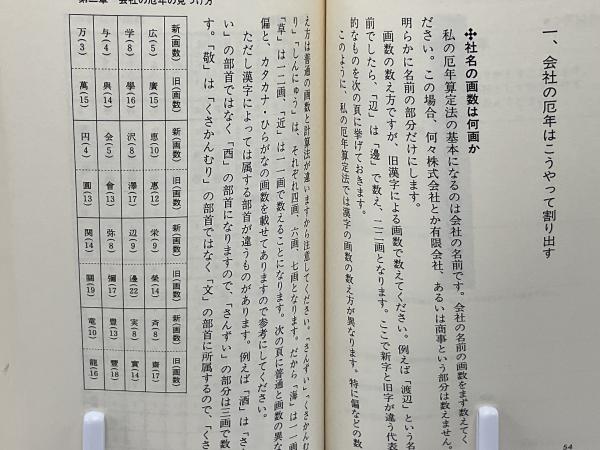 一、会社の厄年はこうやって割り出す
✣社名の画数は何画か
私の厄年算定法の基本になるのは会社の名前です。会社の名前の画数をまず数えてく
ださい。この場合、何々株式会社とか有限会社、あるいは商事という部分は数えません。
明らかに名前の部分だけにします。
画数の数え方ですが、旧漢字による画数で数えてください。例えば「渡辺」という名
前でしたら、「辺」は「邊」で数え、二二画となります。ここで新字と旧字が違う代表
的なものを次の頁に挙げておきます。
このように、私の厄年算定法では漢字の画数の数え方が異なります。特に偏などの数
54
第二章 会社の厄年の見つけ方
え方は普通の画数と計算法が違いますから注意してください。「さんずい」「くさかんむ
り」「しんにゅう」は、それぞれ四画、六画、七画となります。だから「海」は一一画
「草」は一二画、「近」は一一画で数えることになります。次の頁に普通と画数の異な
偏と、カタカナ・ひらがなの画数を載せてありますので参考にしてください。
ただし漢字によっては属する部首が違うものがあります。例えば「酒」は「さ
い」の部首ではなく「酉」の部首になりますので、「さんずい」の部分は三画で数
す。「敬」は「くさかんむり」の部首ではなく「文」の部首に所属するので、「くさ
新(画数) 広(5) 学(8) 与(4) 万(3)
旧(画数) 廣(15) 學(16) 與(14) 萬(15)
新(画数) 恵(10) 沢(8) 会(5) 円(4)
旧(画数) 惠(12) 澤(17) 會(13) 圓(13)
新(画数) 栄(9) 辺(9) 弥(8) 関(14)
旧(画数) 榮(14) 邊(22) 彌(17) 關(19)
新(画数) 斉(8) 実(8) 豊(13) 竜(10)
旧(画数) 齋(17) 實(14) 豐(18) 龍(16)